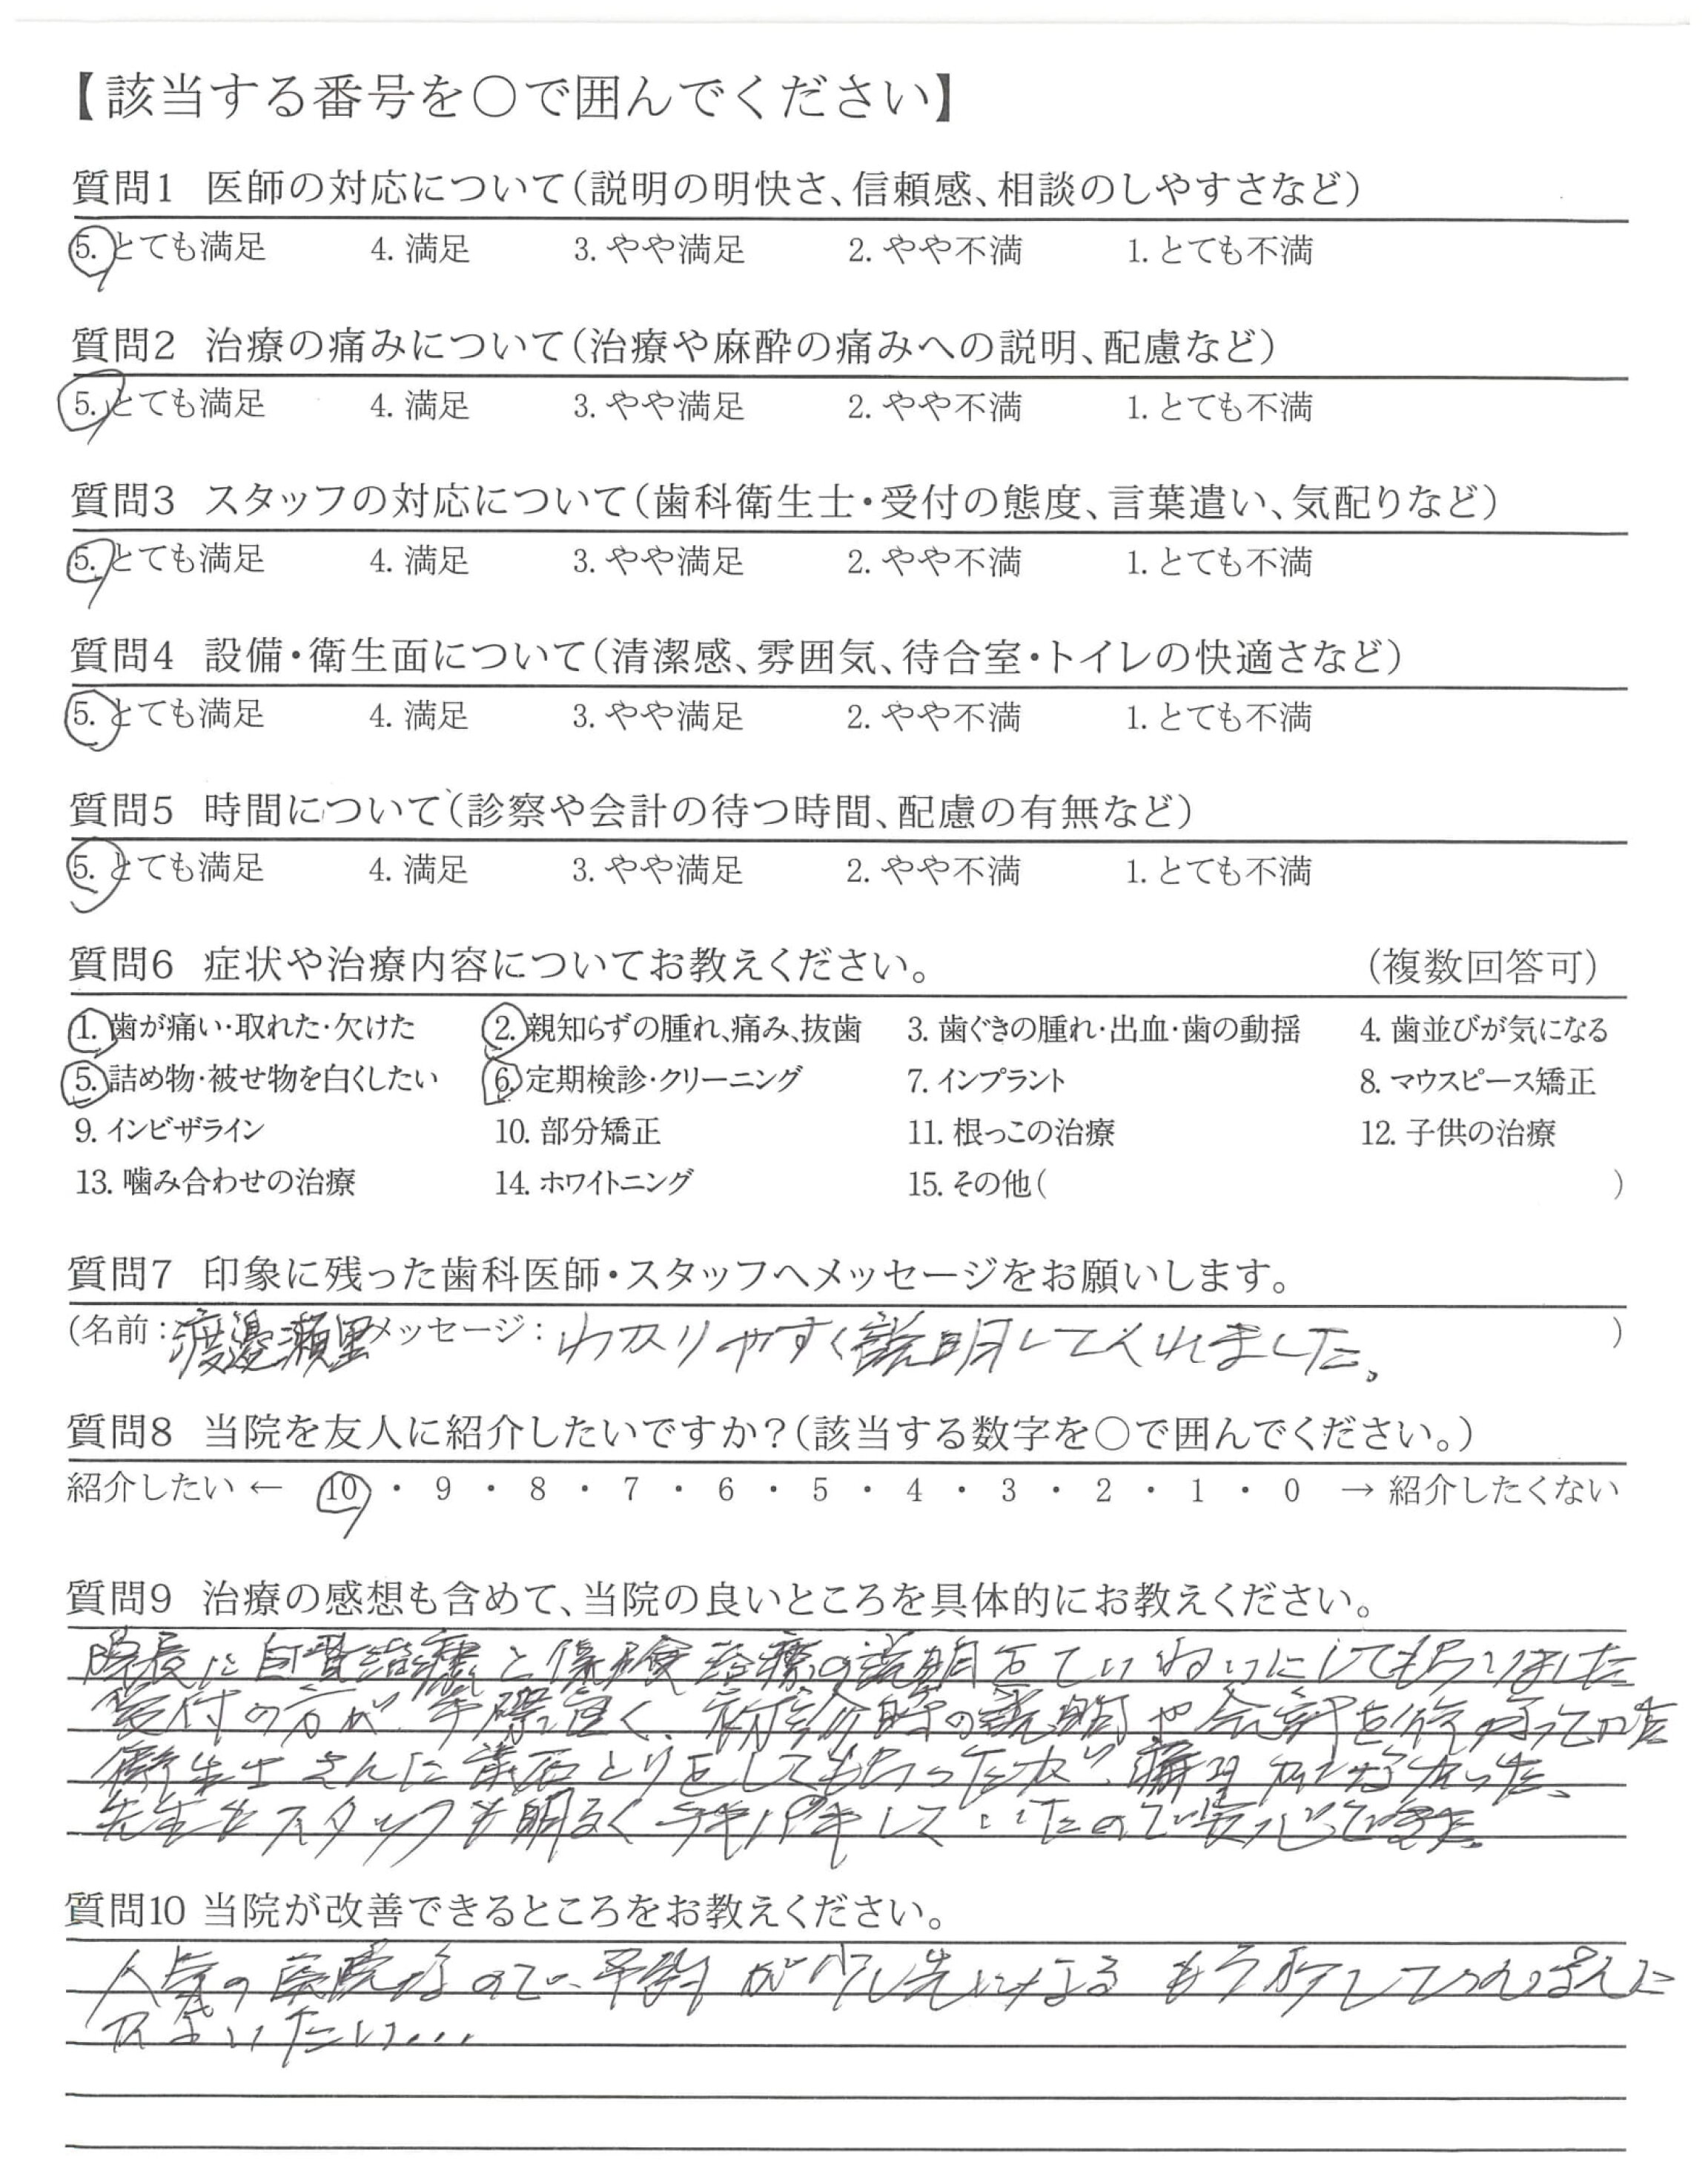 【該当する番号を〇で囲んでください】
質問1 医師の対応について(説明の明快さ、信頼感、相談のしやすさなど)
5. とても満足 4. 満足 3. やや満足 2. やや不満 1. とても不満
質問2 治療の痛みについて(治療や麻酔の痛みへの説明、配慮など)
5. とても満足 4. 満足 3. やや満足 2. やや不満 1. とても不満
質問3 スタッフの対応について(歯科衛生士・受付の態度、言葉遣い、気配りなど)
5. とても満足 4. 満足 3. やや満足 2. やや不満 1. とても不満
質問4 設備・衛生面について(清潔感、雰囲気、待合室・トイレの快適さなど)
5. とても満足 4. 満足 3. やや満足 2. やや不満 1. とても不満
質問5 時間について(診察や会計の待つ時間、配慮の有無など)
5. とても満足 4. 満足 3. やや満足 2. やや不満 1. とても不満
質問6 症状や治療内容についてお教えください。 (複数回答可)
1. 歯が痛い・取れた・欠けた 2. 親知らずの腫れ、痛み、抜歯 3. 歯ぐきの腫れ・出血・歯の動揺 4. 歯並びが気になる
5. 詰め物・被せ物を白くしたい 6. 定期検診・クリーニング 7. インプラント 8. マウスピース矯正
9. インビザライン 10. 部分矯正 11. 根っこの治療 12. 子供の治療
13. 噛み合わせの治療 14. ホワイトニング 15. その他( )
質問7 印象に残った歯科医師・スタッフへメッセージをお願いします。
(名前:渡邉瀬里 メッセージ:わかりやすく説明してくれました。 )
質問8 当院を友人に紹介したいですか?(該当する数字を〇で囲んでください。)
紹介したい ← 10 ・ 9 ・ 8 ・ 7 ・ 6 ・ 5 ・ 4 ・ 3 ・ 2 ・ 1 ・ 0 → 紹介したくない
質問9 治療の感想も含めて、当院の良いところを具体的にお教えください。
院長に自費治療と保険治療の説明をていねいにしてもらいました
受付の方が、手際良く、初診時の説明や会計を行なっていた
衛生士さんに歯石とりをしてもらったが、痛みがなかった、
先生もスタッフも明るくテキパキしていたので安心できた。
質問10 当院が改善できるところをお教えください。
人気の医院なので、予約が少し先になる もう少し